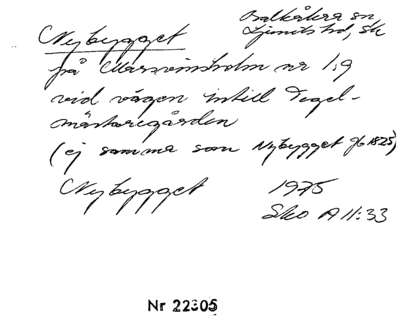 Balkåkra sn
Nybygget Ljunits hd, Sk
på Marsvinsholm nr 1:9
vid vägen intill Tegel-
mästaregården
(ej samma som Nybygget 1825)
Nybygget 1975
Sko A 11:33
Nr 22305